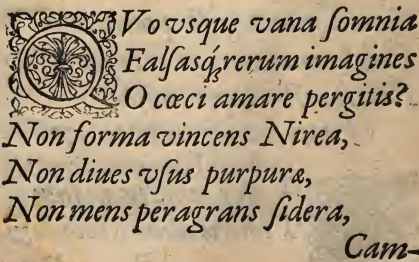 QVo vsque vana somnia
Falsasq́; rerum imagines
O cœci amare pergitis?
Non forma vincens Nirea,
Non diues vsus purpuræ,
Non mens peragrans sidera,
Cam-